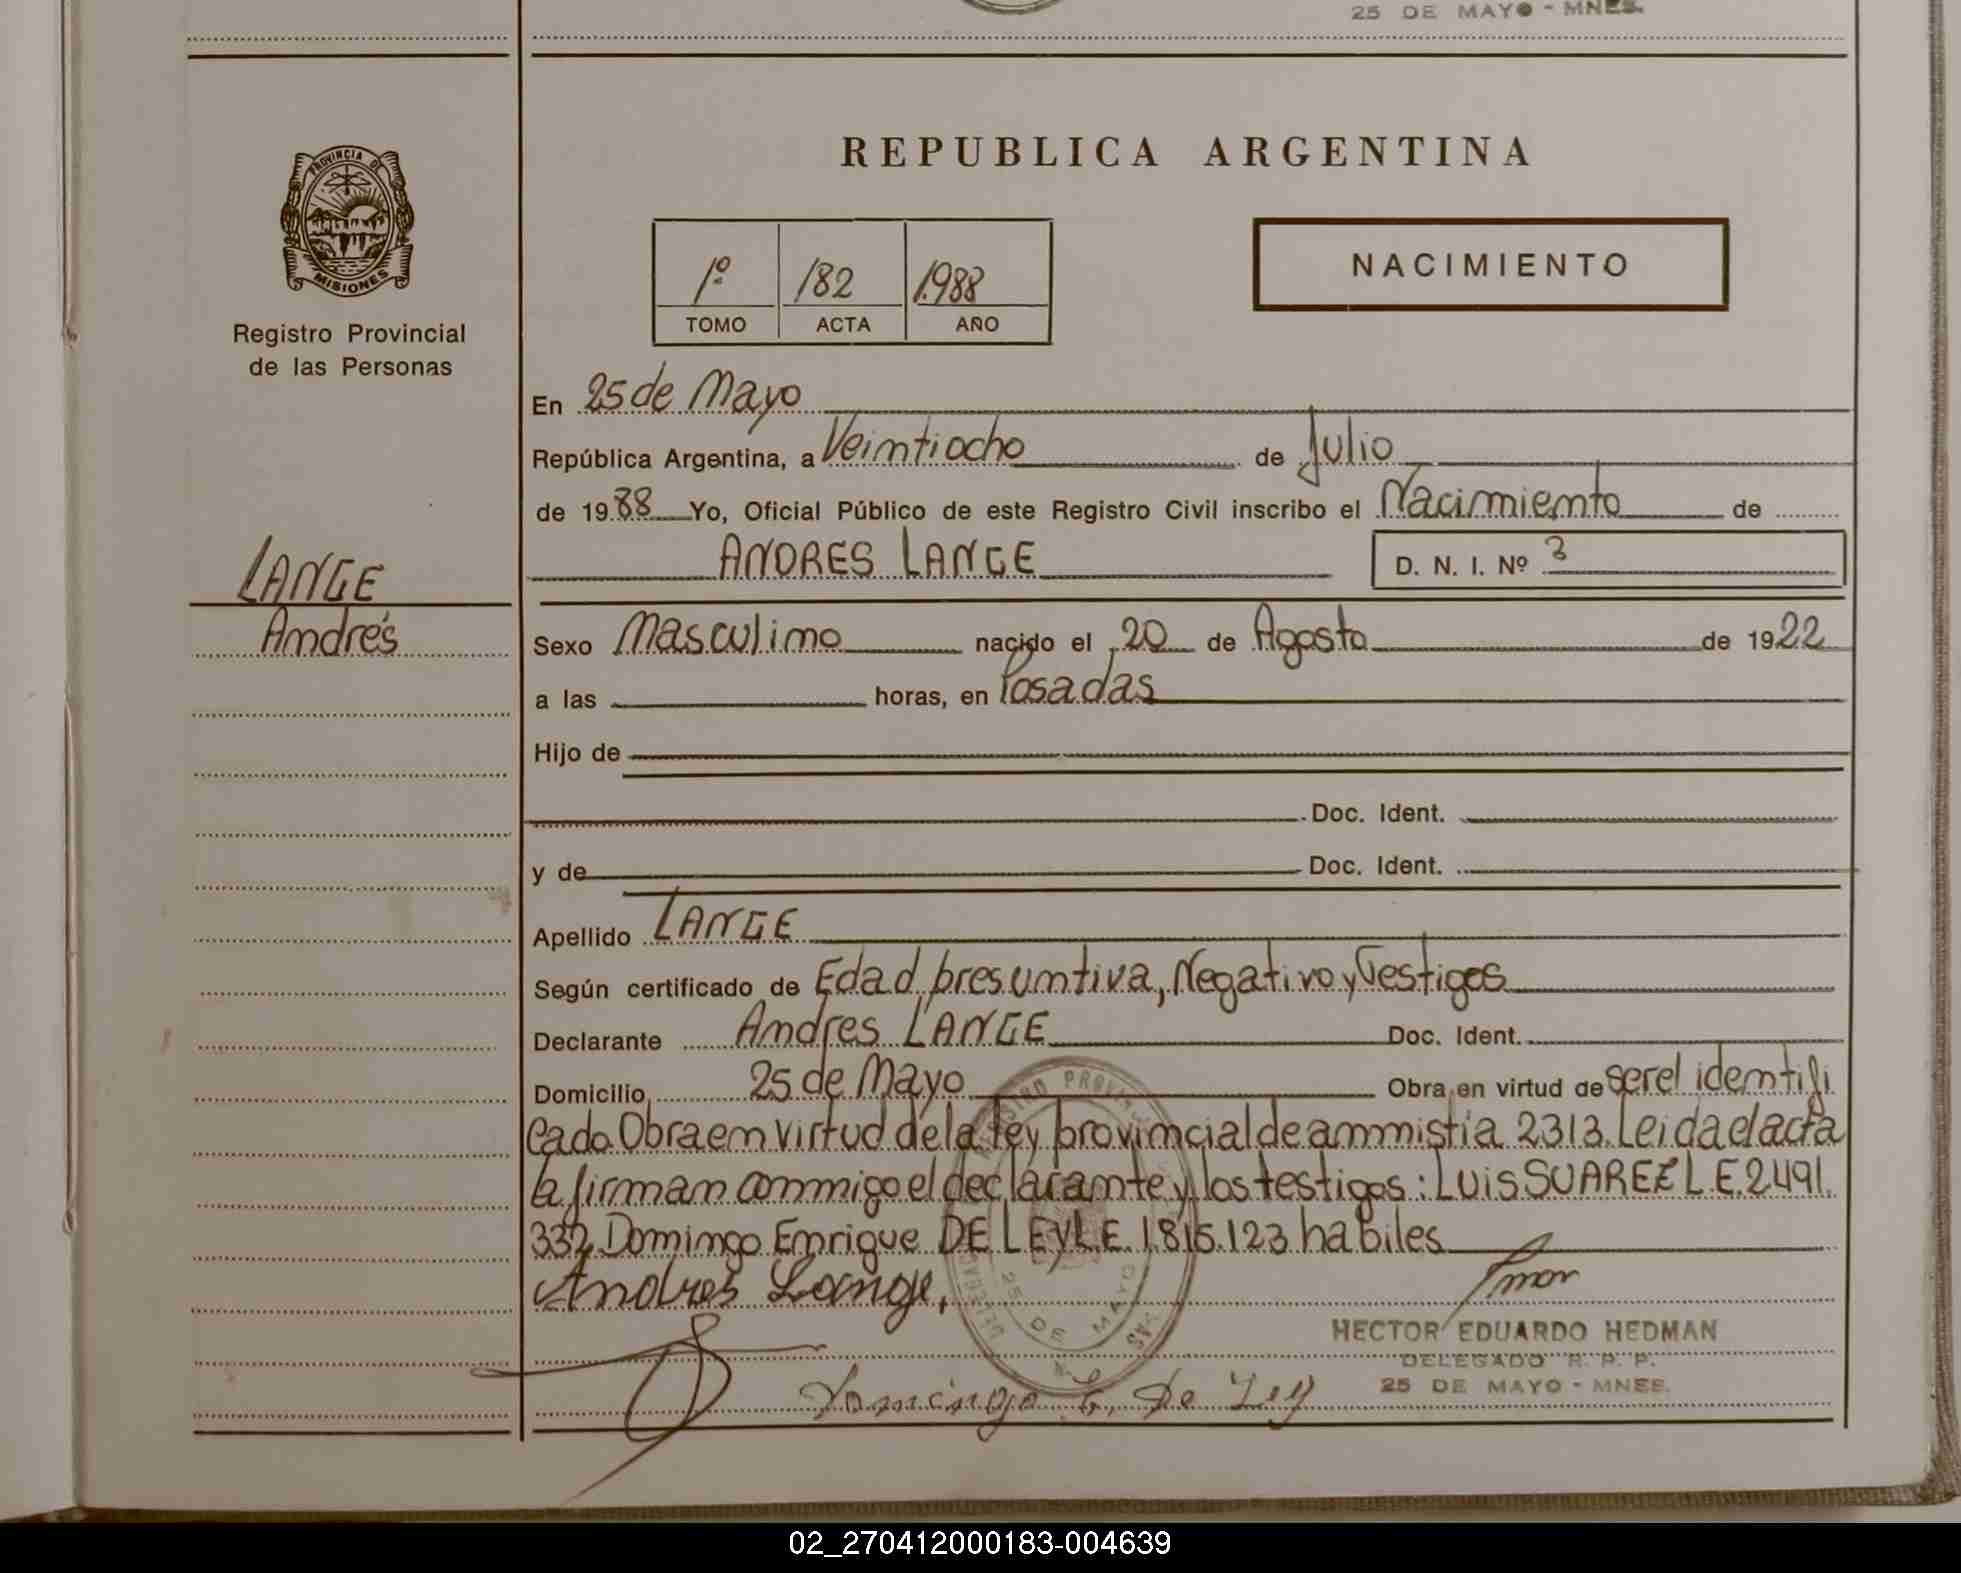 25 DE MAYO - MNES.
REPUBLICA ARGENTINA
PROVINCIA DE
MISIONES
Registro Provincial
de las Personas
1º 182 1.988
TOMO ACTA AÑO
NACIMIENTO
En 25 de Mayo
República Argentina, a Veintiocho de Julio
de 1988 Yo, Oficial Público de este Registro Civil inscribo el Nacimiento de
ANDRES LANGE D. N. I. Nº 3
LANGE
Andrés
Sexo Masculino nacido el 20 de Agosto de 1922
a las horas, en Posadas
Hijo de
Doc. Ident.
y de Doc. Ident.
Apellido LANGE
Según certificado de Edad presuntiva, Negativo y Testigos
Declarante Andres LANGE Doc. Ident.
Domicilio 25 de Mayo Obra en virtud de ser el identifi
cado. Obra en virtud de la ley provincial de ammistia 2313. Leida el acta
la firman conmigo el declarante y los testigos: Luis SUAREZ L.E. 2491.
332, Domingo Enrique DE LEY L.E. 1.815.123 habiles
Andres Lange,
HECTOR EDUARDO HEDMAN
DELEGADO R. P. P.
25 DE MAYO - MNES.
Domingo E. De Ley
25 DE MAYO
02_270412000183-004639